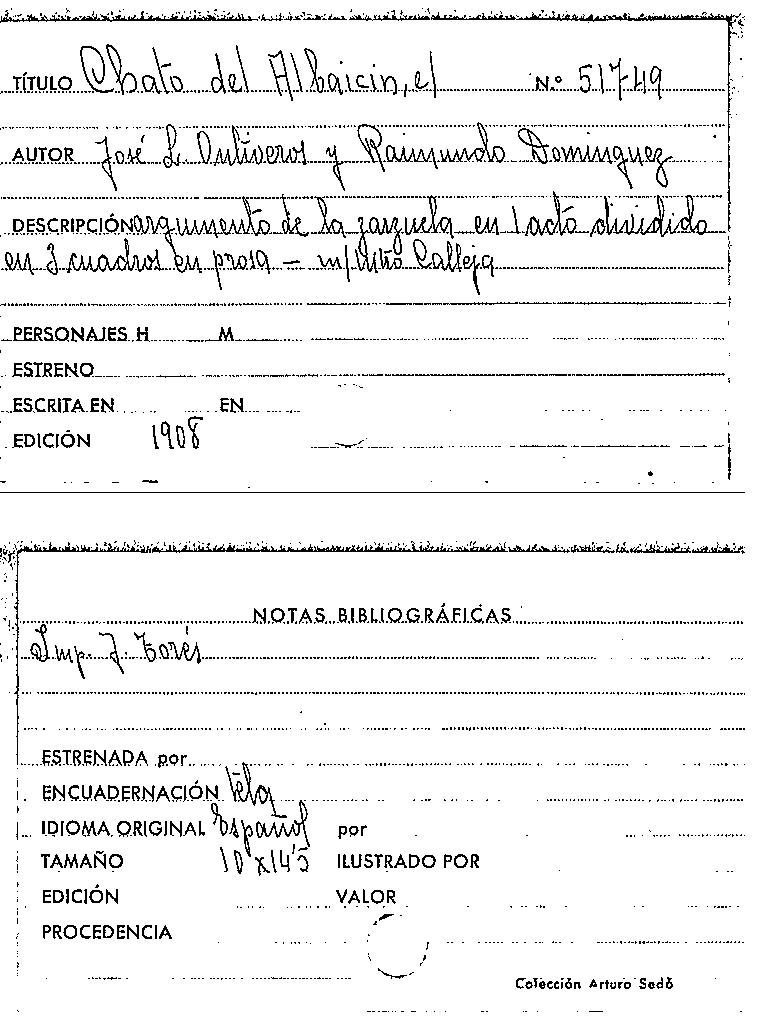 TÍTULO Chato del Albaicin, el N.º 517-49
AUTOR José L. Ontiveros y Raimundo Dominguez
DESCRIPCIÓN argumento de la zarzuela en 1 acto dividido
en 3 cuadros en prosa - m/ Calleja
PERSONAJES H M
ESTRENO
ESCRITA EN EN
EDICIÓN 1908
NOTAS BIBLIOGRÁFICAS
Imp. J. Torés
ESTRENADA por
ENCUADERNACIÓN tela
IDIOMA ORIGINAL Español por
TAMAÑO 10'x14'5 ILUSTRADO POR
EDICIÓN VALOR
PROCEDENCIA
Colección Arturo Sedó